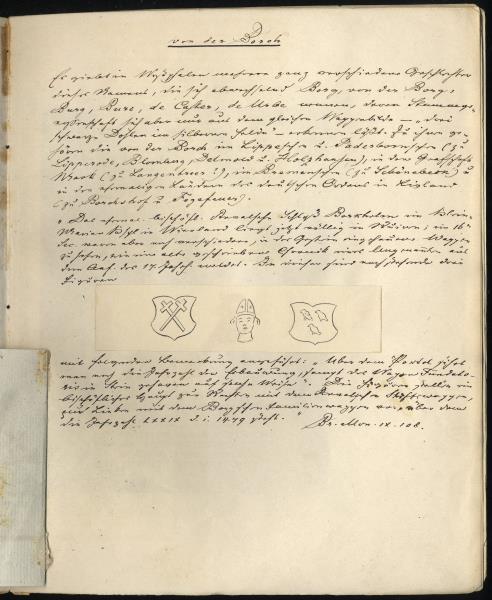 von der Borch
Es giebt in Westphalen mehrere ganz verschiedene Geschlechter
dieses Namens, die sich abwechselnd Borg, von der Borg,
Burg, Bure, de Castro, de Urbe nennen, deren Stammge-
nossenschaft sich aber nur aus dem gleichen Wappenbilde — „drei
schwarze Dohlen im silbernen Felde“ — erkennen läßt. Zu ihnen ge-
hören die von der Borch im Lippeschen u. Paderbornschen (zu
Lipperode, Blomberg, Detmold u. Holzhausen), in der Grafschaft
Mark (zu Langendreer), im Bremenschen (zu Schönebeck) u
in den ehemaligen Ländern des deutschen Ordens in Livland
(zu Borchshof u.
Das ehemal. bischöfl. Schloß Borkholm in
in Wierland liegt jetzt völlig in Ruinen; im 16
aber noch verschiedene, in das Gestein eingehauene Wappen
zu sehen, wie eine alte geschriebene Chronik
dem Anf. des 17. Jahrh. meldet. In dieser sind nachstehende drei
Figuren
mit folgender Bemerkung angeführt: „Über dem Portal siehet
man noch die Jahrzahl der Erbauung, sampt des Wapen Fundato-
ris in Stein gehauen auf solche Weise“. Die Figuren stellen ein
bischöfliches Haupt zur Rechten mit dem Revalschen Stiftswappen,
zur Linken mit dem Borgschen Familienwappen vor, über dem
die Jahrzahl LXXIX d. i. 1479 steht.
Br. Mon. IX. 108.